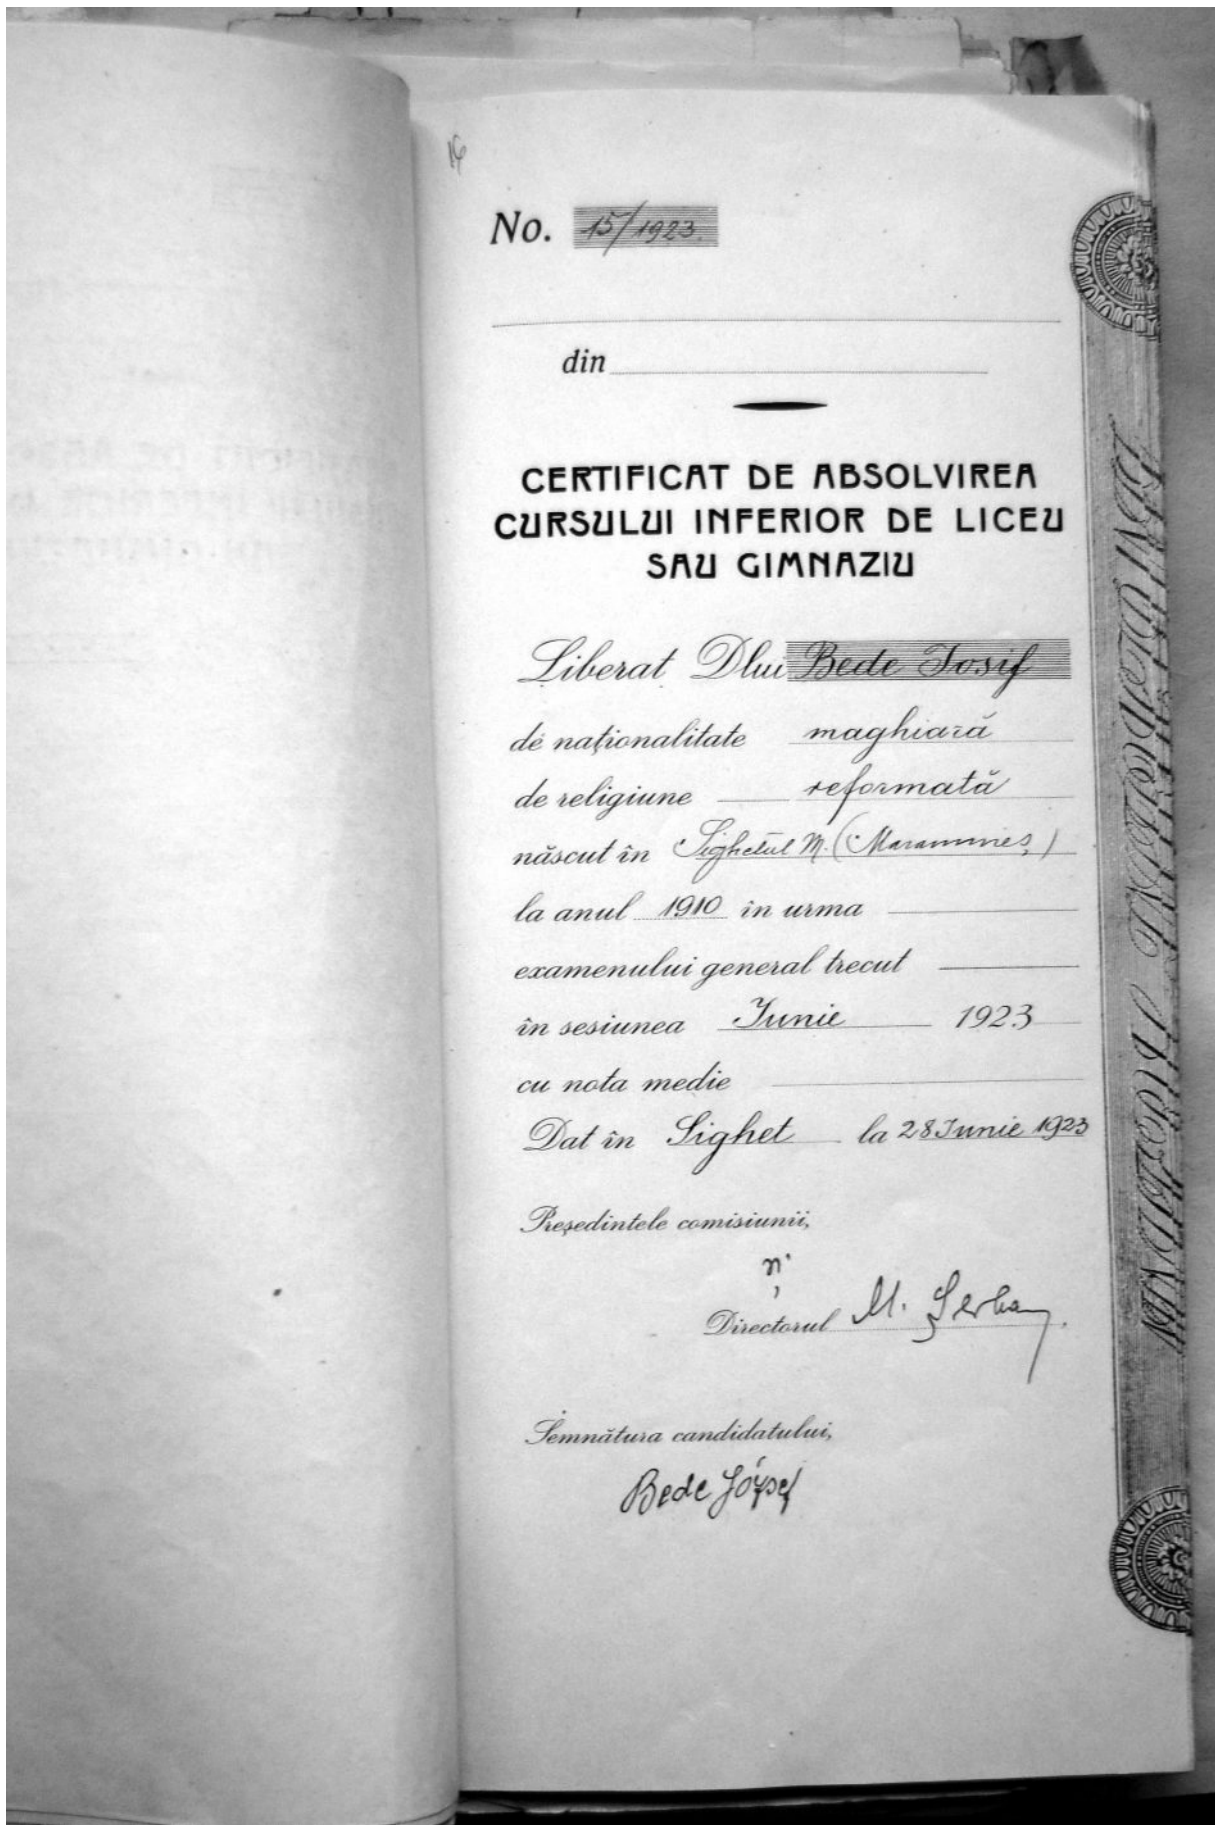 16
No. 15/1923.
din
CERTIFICAT DE ABSOLVIREA
CURSULUI INFERIOR DE LICEU
SAU GIMNAZIU
Liberat Dlui Bede Iosif
de naționalitate maghiară
de religiune reformată
născut în Sighetul M. (Maramureș)
la anul 1910 în urma
examenului general trecut
în sesiunea Iunie 1923
cu nota medie
Dat în Sighet la 28 Iunie 1923
Președintele comisiunii,
Directorul M. Șerban
Semnătura candidatului,
Bede József